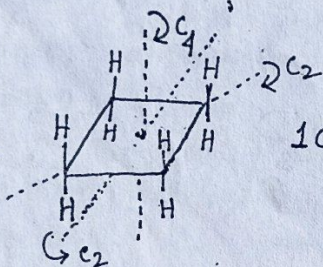 C4
H H
C2
H H
H H 1
H H
C2